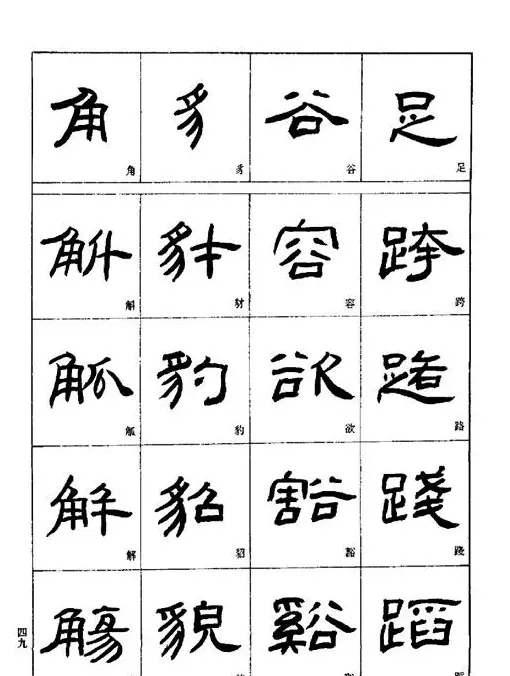 足 足
跨 跨
路 路
踐 踐
蹈
谷 谷
容 容
欲 欲
豁 豁
谿
豸 豸
豺 豺
豹 豹
貂 貂
貌
角 角
斛 斛
觚 觚
解 解
觴
四九